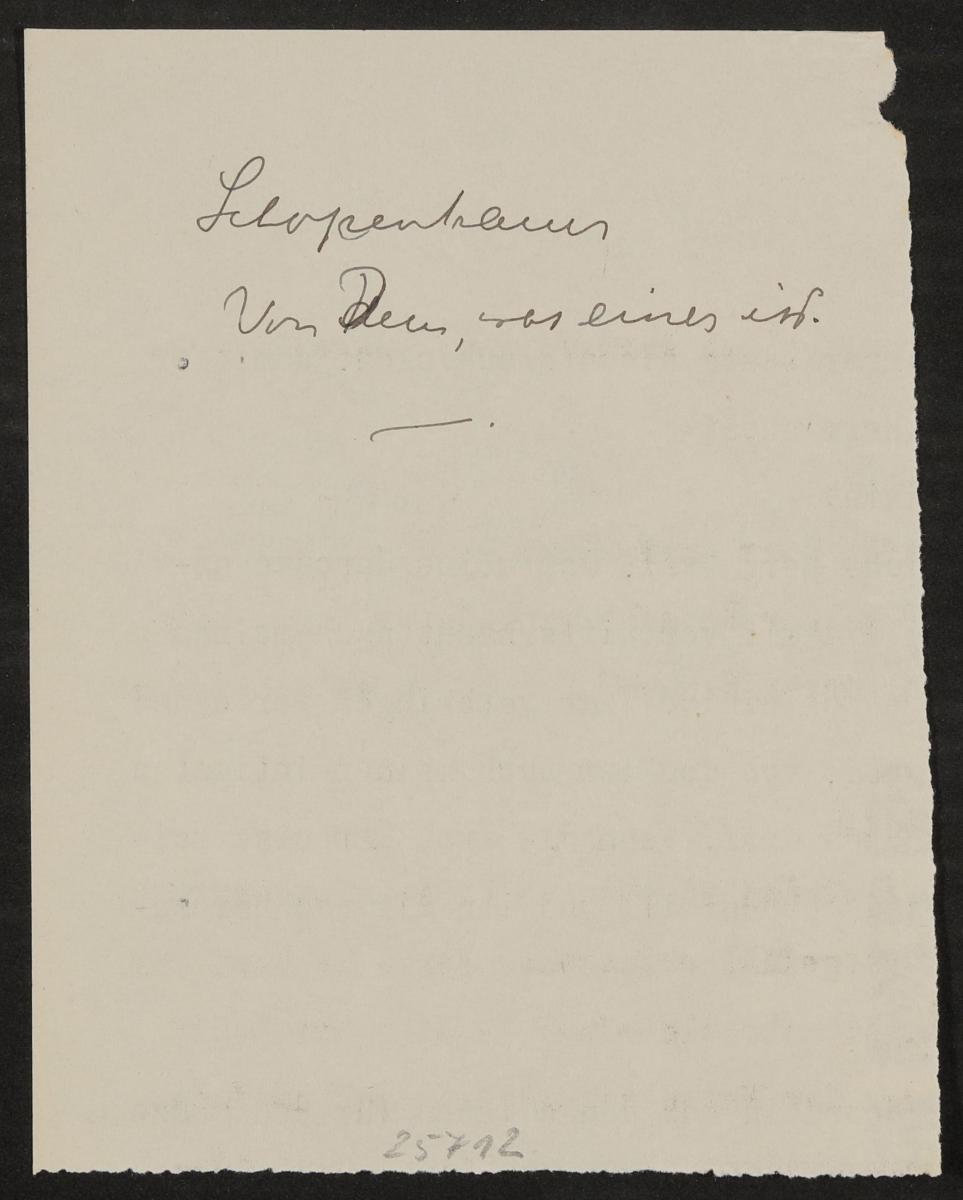 Schopenhauer
Von Dem, was einer ist.
25712